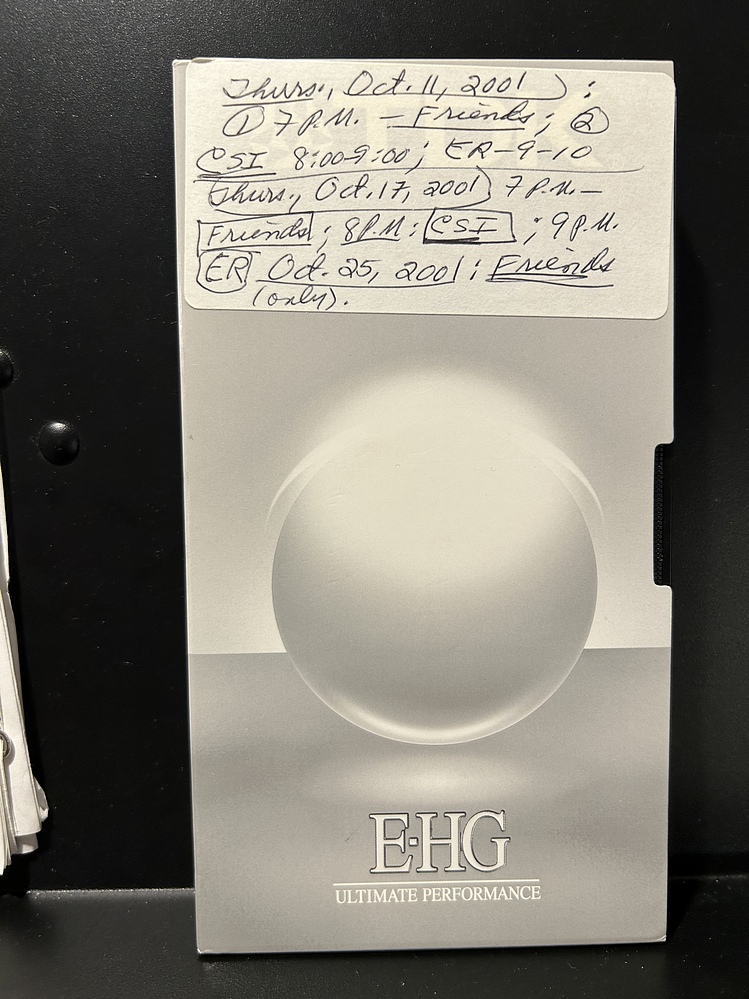 Thurs., Oct. 11, 2001) :
① 7 P.M. – Friends; ②
CSI 8:00-9:00; ER-9-10
Thurs., Oct. 17, 2001) 7 P.M. –
Friends; 8 P.M: CSI ; 9 P.M.
ER Oct. 25, 2001: Friends
(only).
E·HG
ULTIMATE PERFORMANCE